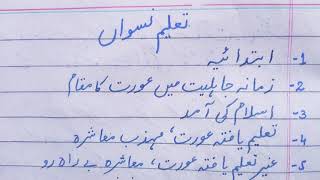 تعلیم نسواں
1- ابتدائیہ
2- زمانہ جاہلیت میں عورت کا مقام
3- اسلام کی آمد
4- تعلیم یافتہ عورت، مہذب معاشرہ
5- غیر تعلیم یافتہ عورت، معاشرہ بے راہ رو